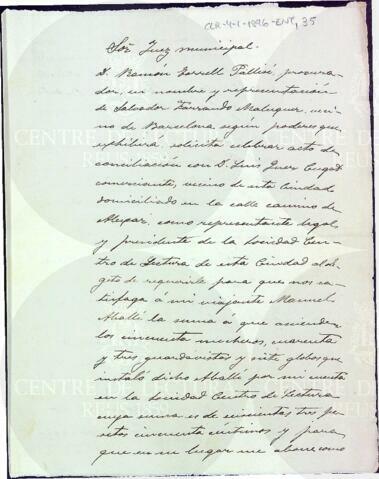 CLR-4-1-1896-ENT, 35
Sor Juez municipal.
D. Ramón Torrell Pallisé, procura-
dor, en nombre y representación
de Salvador Farrando Maluquer, veci-
no de Barcelona según poderes que
exhibirá solicita celebrar acto de
conciliación con D. Luis Quer Cugat
comerciante, vecino de esta Ciudad
domiciliado en la calle camino de
Aleixar, como representante legal
y presidente de la Sociedad Cen-
tro de Lectura de esta Ciudad al ob-
geto de requerirle para que nos sa-
tisfaga a mi viajante Manuel
Aballí la suma á que ascienden
los cincuenta mecheros, cuarenta
y tres guardavistas y siete globos que
instaló dicho Aballí por mi cuenta
en la Sociedad Centro de Lectura
cuya suma es de seiscientas tres pe-
setas cincuenta céntimos y para
que en su lugar me abone como
CENTRE DE LECTURA
REUS